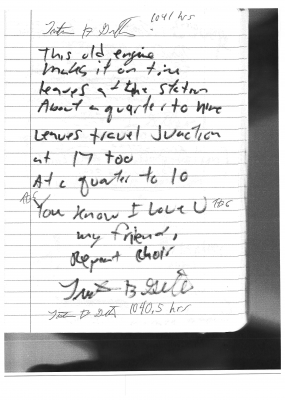 1041 hrs
This old engine
makes it on time
Leaves at the station
About a quarter to nine
Leaves travel Junction
at 17 too
At a quarter to 10
TDG
You know I Love U TDG
my friend,
Repeat Choir
B
1040.5 hrs